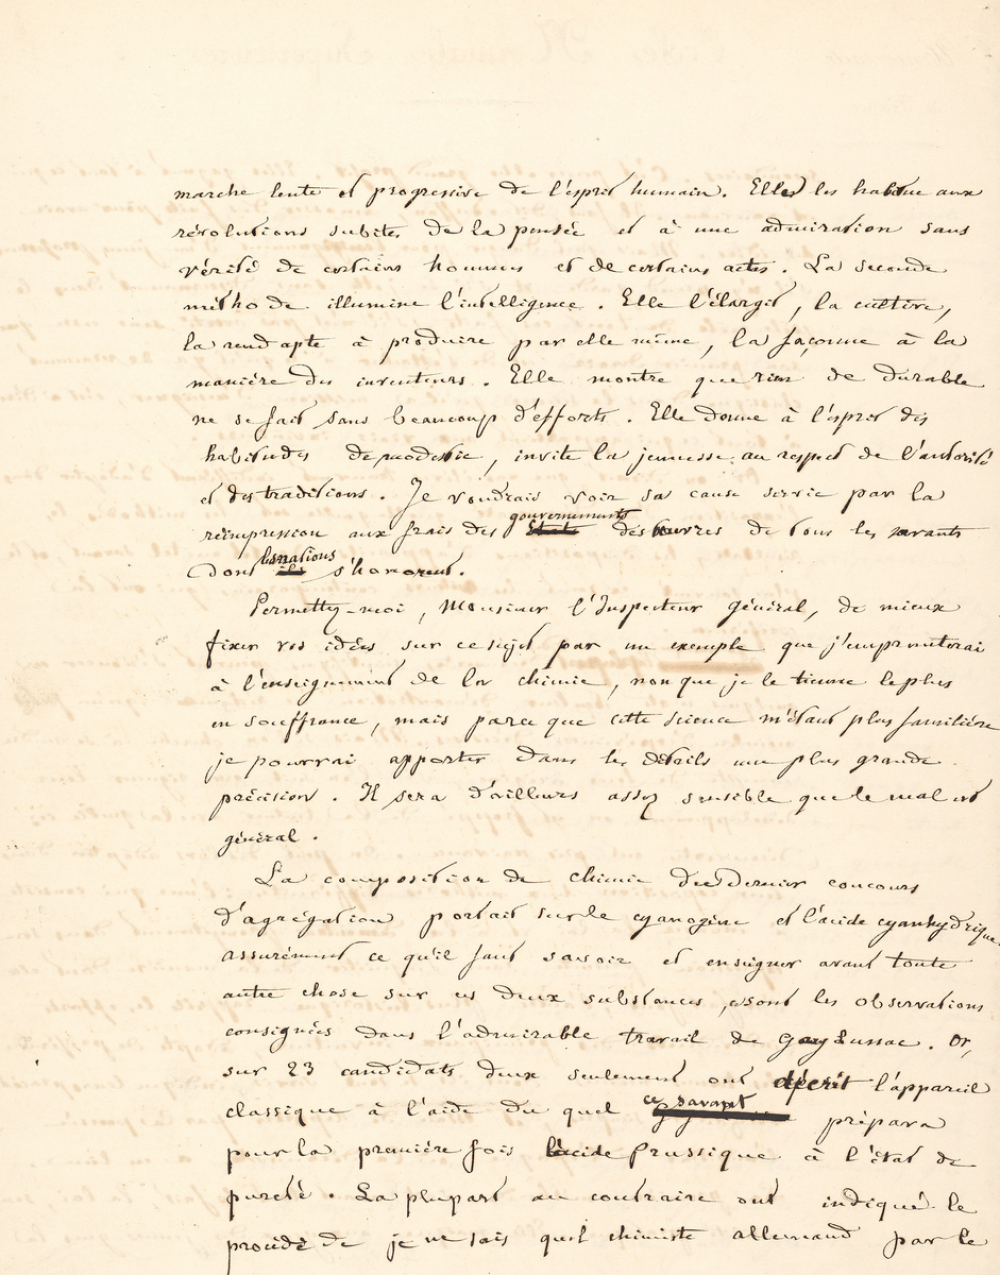 marche lente et progressive de l'esprit humain. Elle les habitue aux
révolutions subites de la pensée et à une admiration sans
vérité de certains hommes et de certains actes. La seconde
méthode illumine l'intelligence. Elle l'élargit, la cultive,
la rend apte à produire par elle même, la façonne à la
manière des inventeurs. Elle montre que rien de durable
ne se fait sans beaucoup d'efforts. Elle donne à l'esprit des
habitudes de modestie, invite la jeunesse au respect de l'autorité
et des traditions. Je voudrais voir sa cause servie par la
gouvernements
réimpression aux frais des Etats des œuvres de tous les savants
les nations
dont ils s'honorent.
Permettez-moi, Monsieur l'Inspecteur général, de mieux
fixer vos idées sur ce sujet par un exemple que j'emprunterai
à l'enseignement de la chimie, non que je le tienne le plus
en souffrance, mais parce que cette science m'étant plus familière
je pourrai apporter dans les détails une plus grande
précision. Il sera d'ailleurs assez sensible que le mal est
général.
La composition de chimie du dernier concours
d'agrégation portait sur le cyanogène et l'acide cyanhydrique.
assurément ce qu'il faut savoir et enseigner avant toute
autre chose sur ces deux substances, ce sont les observations
consignées dans l'admirable travail de Gay Lussac. Or,
sur 23 candidats deux seulement ont décrit l'appareil
ce savant
classique à l'aide du quel prépara
pour la première fois l'acide Prussique à l'état de
pureté. La plupart au contraire ont indiqué le
procédé de je ne sais quel chimiste allemand par le